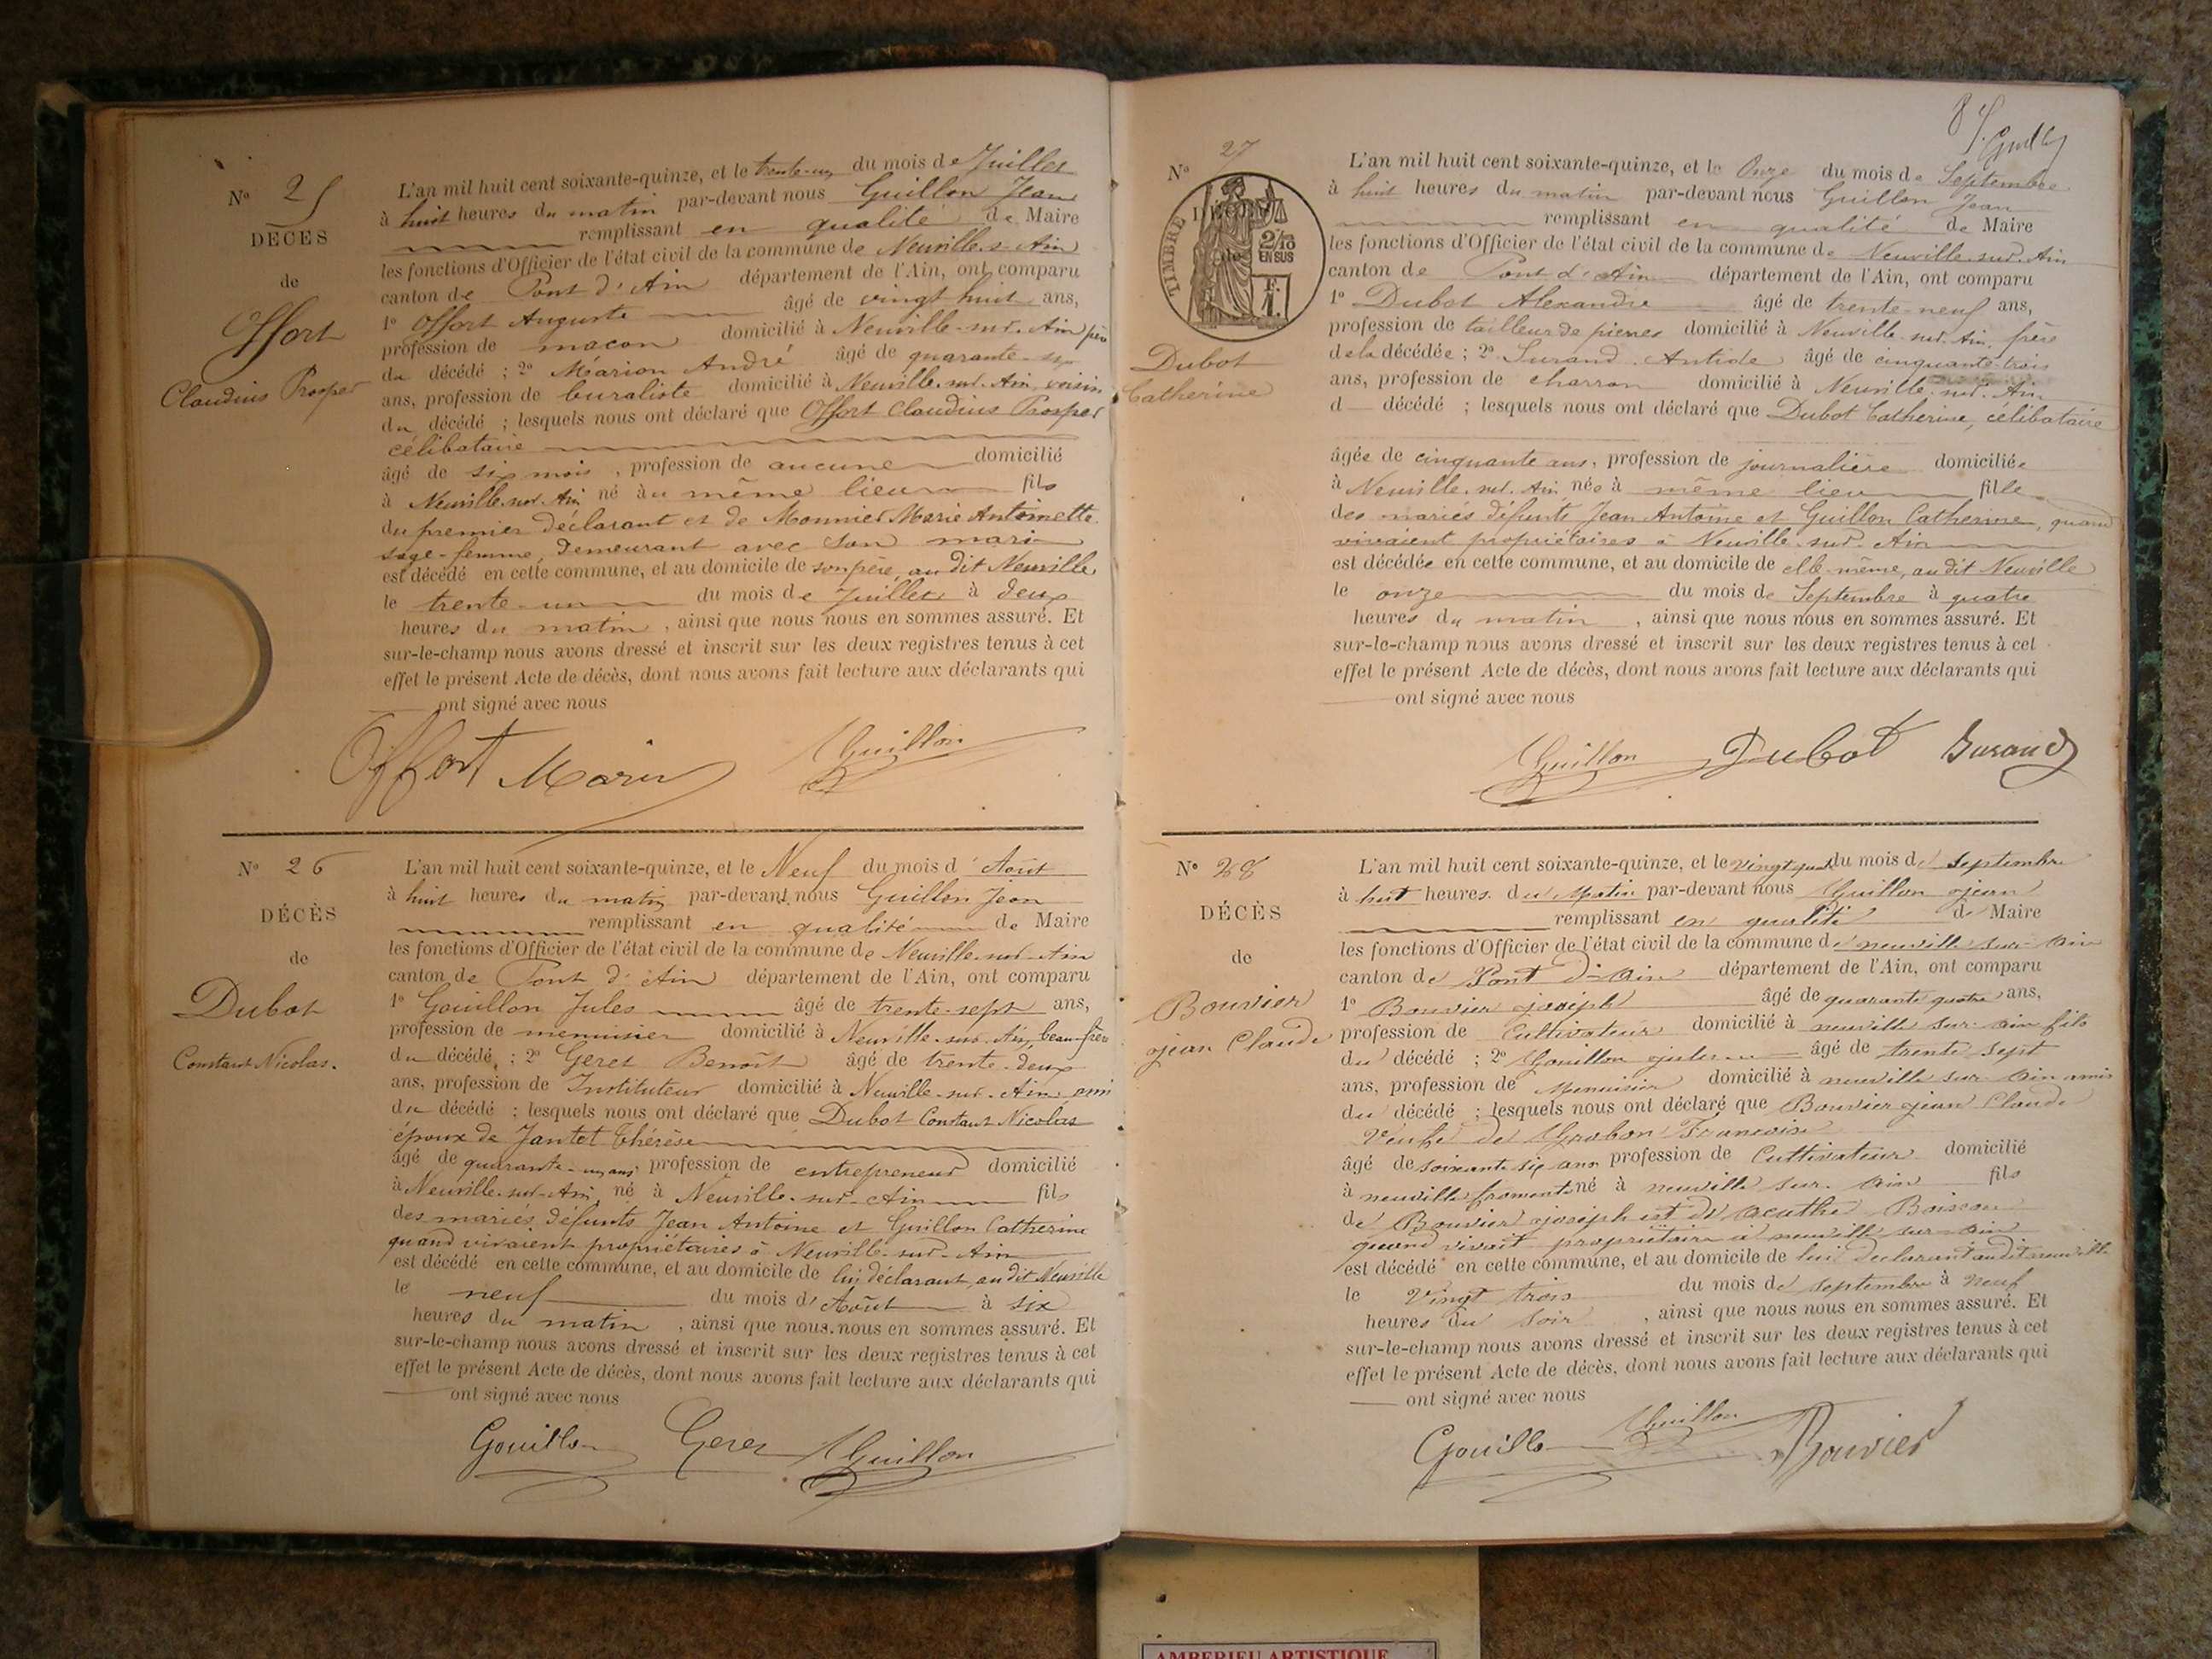 N° 25
DÉCÈS
de
Offort
Claudius Prosper
L'an mil huit cent soixante-quinze, et le trente-un du mois de Juillet
à huit heures du matin par-devant nous Guillon Jean
remplissant en qualité de Maire
les fonctions d'Officier de l'état civil de la commune de Neuville-s-Ain
canton de Pont d'Ain département de l'Ain, ont comparu
1° Offort Auguste âgé de vingt huit ans,
profession de maçon domicilié à Neuville-sur-Ain père
du décédé ; 2° Marion André âgé de quarante-six
ans, profession de buraliste domicilié à Neuville-sur-Ain, voisin
du décédé ; lesquels nous ont déclaré que Offort Claudius Prosper
célibataire
âgé de six mois, profession de aucune domicilié
à Neuville-sur-Ain né au même lieu fils
du premier déclarant et de Monnier Marie Antoinette
sage-femme, demeurant avec son mari
est décédé en cette commune, et au domicile de son père, au dit Neuville
le trente-un du mois de Juillet à deux
heures du matin, ainsi que nous nous en sommes assuré. Et
sur-le-champ nous avons dressé et inscrit sur les deux registres tenus à cet
effet le présent Acte de décès, dont nous avons fait lecture aux déclarants qui
ont signé avec nous
Offort Guillon
N° 26
DÉCÈS
de
Dubot
Constant Nicolas.
L'an mil huit cent soixante-quinze, et le Neuf du mois d'Août
à huit heures du matin par-devant nous Guillon Jean
remplissant en qualité de Maire
les fonctions d'Officier de l'état civil de la commune de Neuville-sur-Ain
canton de Pont d'Ain département de l'Ain, ont comparu
1° Gouillon Jules âgé de trente-sept ans,
profession de menuisier domicilié à Neuville-sur-Ain, beau-frère
du décédé ; 2° Geret Benoît âgé de trente-deux
ans, profession de Instituteur domicilié à Neuville-sur-Ain ami
du décédé ; lesquels nous ont déclaré que Dubot Constant Nicolas
époux de Jantet Thérèse
âgé de quarante-un ans profession de entrepreneur domicilié
à Neuville-sur-Ain, né à Neuville-sur-Ain fils
des mariés défunts Jean Antoine et Guillon Catherine
quand vivaient propriétaires à Neuville-sur-Ain
est décédé en cette commune, et au domicile de lui déclarant, au dit Neuville
le neuf du mois d'Août à six
heures du matin, ainsi que nous nous en sommes assuré. Et
sur-le-champ nous avons dressé et inscrit sur les deux registres tenus à cet
effet le présent Acte de décès, dont nous avons fait lecture aux déclarants qui
ont signé avec nous
Gouillon Geret Guillon
N° 27
TIMBRE
2/10
EN SUS
Dubot
Catherine
L'an mil huit cent soixante-quinze, et le Onze du mois de Septembre
à huit heures du matin par-devant nous Guillon Jean
remplissant en qualité de Maire
les fonctions d'Officier de l'état civil de la commune de Neuville-sur-Ain
canton de Pont d'Ain département de l'Ain, ont comparu
1° Dubot Alexandre âgé de trente-neuf ans,
profession de tailleur de pierres domicilié à Neuville-sur-Ain, frère
de la décédée ; 2° Durand Antide âgé de cinquante-trois
ans, profession de charron domicilié à Neuville-sur-Ain
d décédé ; lesquels nous ont déclaré que Dubot Catherine, célibataire
âgée de cinquante ans, profession de journalière domiciliée
à Neuville-sur-Ain née à même lieu fille
des mariés défunts Jean Antoine et Guillon Catherine, quand
vivaient propriétaires à Neuville-sur-Ain
est décédée en cette commune, et au domicile de elle-même, au dit Neuville
le onze du mois de Septembre à quatre
heures du matin, ainsi que nous nous en sommes assuré. Et
sur-le-champ nous avons dressé et inscrit sur les deux registres tenus à cet
effet le présent Acte de décès, dont nous avons fait lecture aux déclarants qui
ont signé avec nous
Guillon Dubot Durand
N° 28
DÉCÈS
de
Bouvier
jean Claude
L'an mil huit cent soixante-quinze, et le vingt quatre du mois de septembre
à huit heures du matin par-devant nous Guillon jean
remplissant en qualité de Maire
les fonctions d'Officier de l'état civil de la commune de neuville sur-ain
canton de Pont d'-ain département de l'Ain, ont comparu
1° Bouvier joseph âgé de quarante quatre ans,
profession de Cultivateur domicilié à neuville sur-ain fils
du décédé ; 2° Gouillon jules âgé de trente sept
ans, profession de Menuisier domicilié à neuville sur-ain amis
du décédé ; lesquels nous ont déclaré que Bouvier jean Claude
Veuf de Grabon Francoise
âgé de soixante six ans profession de Cultivateur domicilié
à neuville né à neuville sur-ain fils
de Bouvier joseph et de
quand vivait propriétaire à neuville sur-ain
est décédé en cette commune, et au domicile de lui declarant audit neuville
le Vingt trois du mois de septembre à neuf
heures du soir, ainsi que nous nous en sommes assuré. Et
sur-le-champ nous avons dressé et inscrit sur les deux registres tenus à cet
effet le présent Acte de décès, dont nous avons fait lecture aux déclarants qui
ont signé avec nous
Gouillon Guillon Bouvier
AMBERIEU ARTISTIQUE